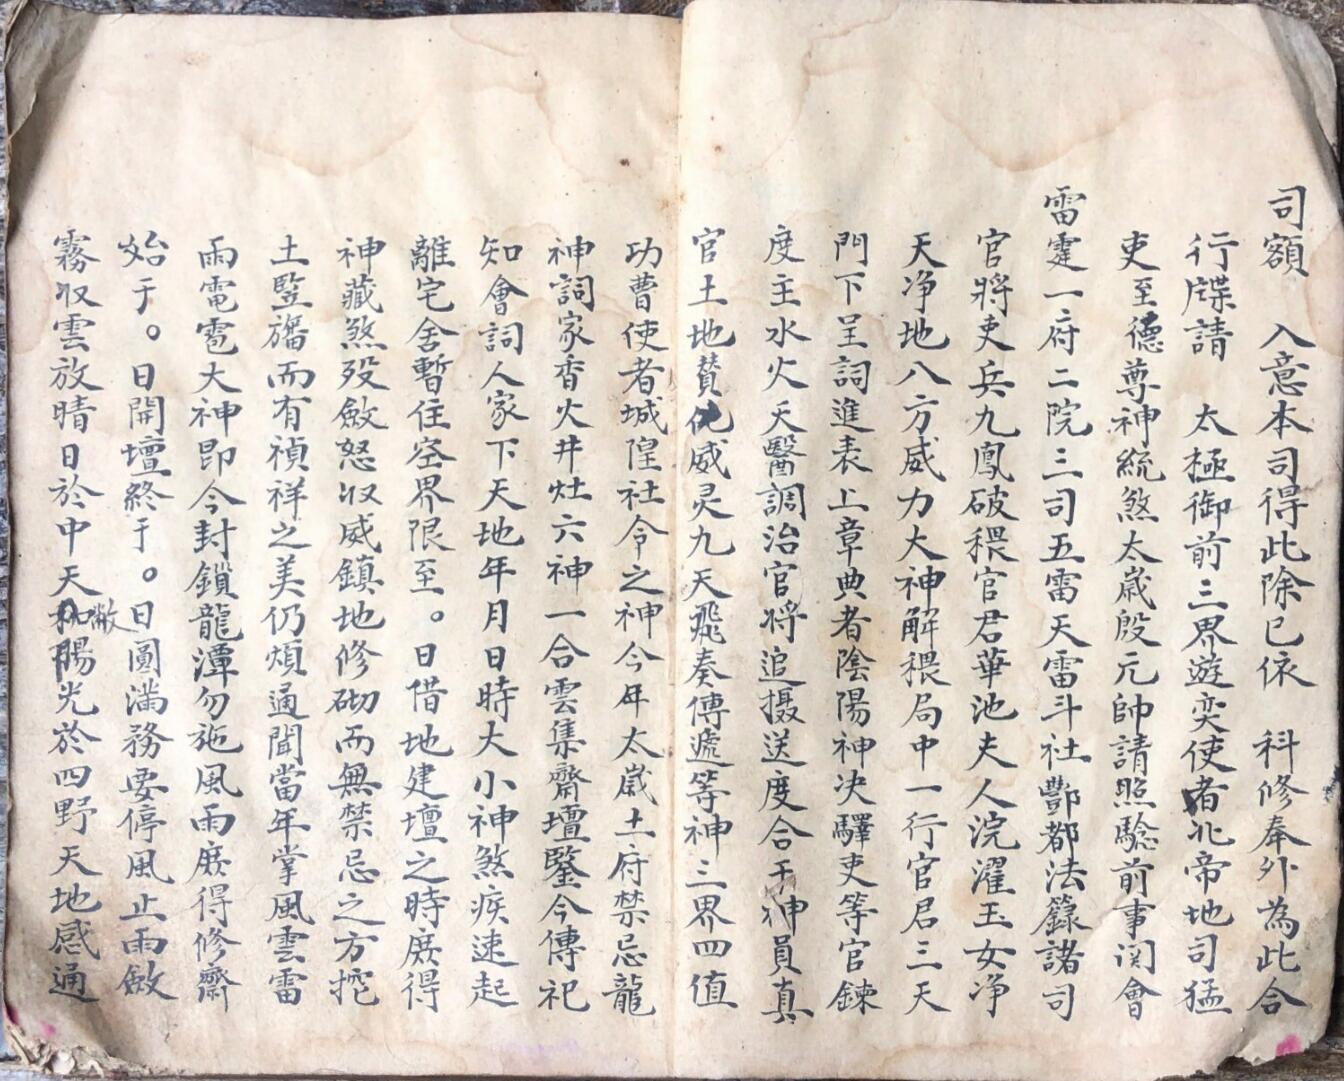 司額　入意本司得此除已依　科修奉外為此合
行牒請　太極御前三界遊奕使者北帝地司猛
吏至德尊神統煞太歲殷元帥請照驗前事関會
雷霆一府二院三司五雷天雷斗社酆都法籙諸司
官將吏兵九鳳破穢官君華池夫人浣濯玉女净
天净地八方威力大神解穢局中一行官君三天
門下呈詞進表上章典者陰陽神决驛吏等官鍊
度主水火天醫調治官將追摄送度合干神員真
官土地賛化威灵九天飛奏傳遞等神三界四值
功曹使者城隍社令之神今年太歲土府禁忌龍
神詞家香火井灶六神一合雲集齋壇鑒今傳祀
知會詞人家下天地年月日時大小神煞疾速起
離宅舍暫住空界限至。日借地建壇之時庶得
神藏煞歿斂怒収威鎮地修砌而無禁忌之方挖
土竪旛而有禎祥之美仍煩通聞當年掌風雲雷
雨電雹大神即今封鎖龍潭勿施風雨庶得修齋
始于。日開壇終于。日圓滿務要停風止雨斂
霧収雲放晴日於中天敝陽光於四野天地感通